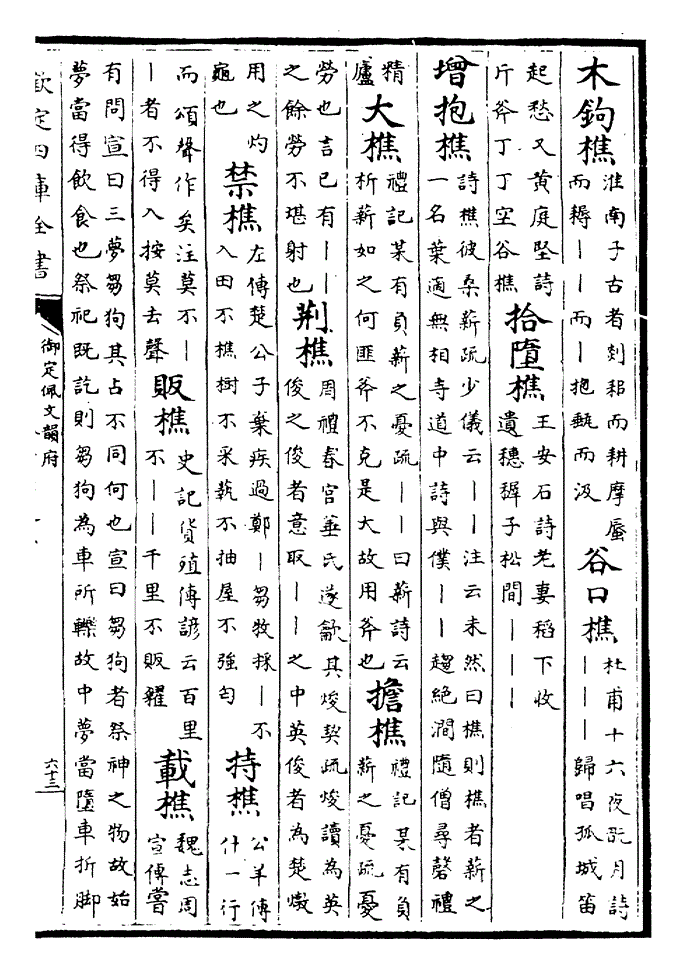 木鉤樵淮南子古者剡耜而耕摩蜃而耨――而―抱甀而汲谷口樵杜甫十六夜翫月詩―――歸唱孤城笛
起愁又黄庭堅詩斤斧丁丁空谷樵拾墮樵王安石詩老妻稻下收遺穗稺子松間―――
增抱樵詩樵彼桑薪疏少儀云――注云未然曰樵則樵者薪之一名葉適無相寺道中詩與僕――趨絶澗隨僧尋磬禮
精廬大樵禮記某有負薪之憂疏――曰薪詩云析薪如之何匪斧不克是大故用斧也擔樵禮記某有負薪之憂疏憂
勞也言已有――之餘勞不堪射也荆樵周禮春官菙氏遂龡其焌契疏焌讀為英俊之俊者意取――之中英俊者為楚燉
用之灼龜也禁樵左傳楚公子棄疾過鄭―芻牧採―不入田不樵樹不采蓺不抽屋不強匄持樵公羊傳什一行
而頌聲作矣注莫不――者不得入按莫去聲販樵史記貨殖傳諺云百里不――千里不販糴載樵魏志周宣傳嘗
有問宣曰三夢芻狗其占不同何也宣曰芻狗者祭神之物故始夢當得飲食也祭祀既訖則芻狗為車所轢故中夢當墮車折脚
欽定四庫全書
御定佩文韻府
六十三